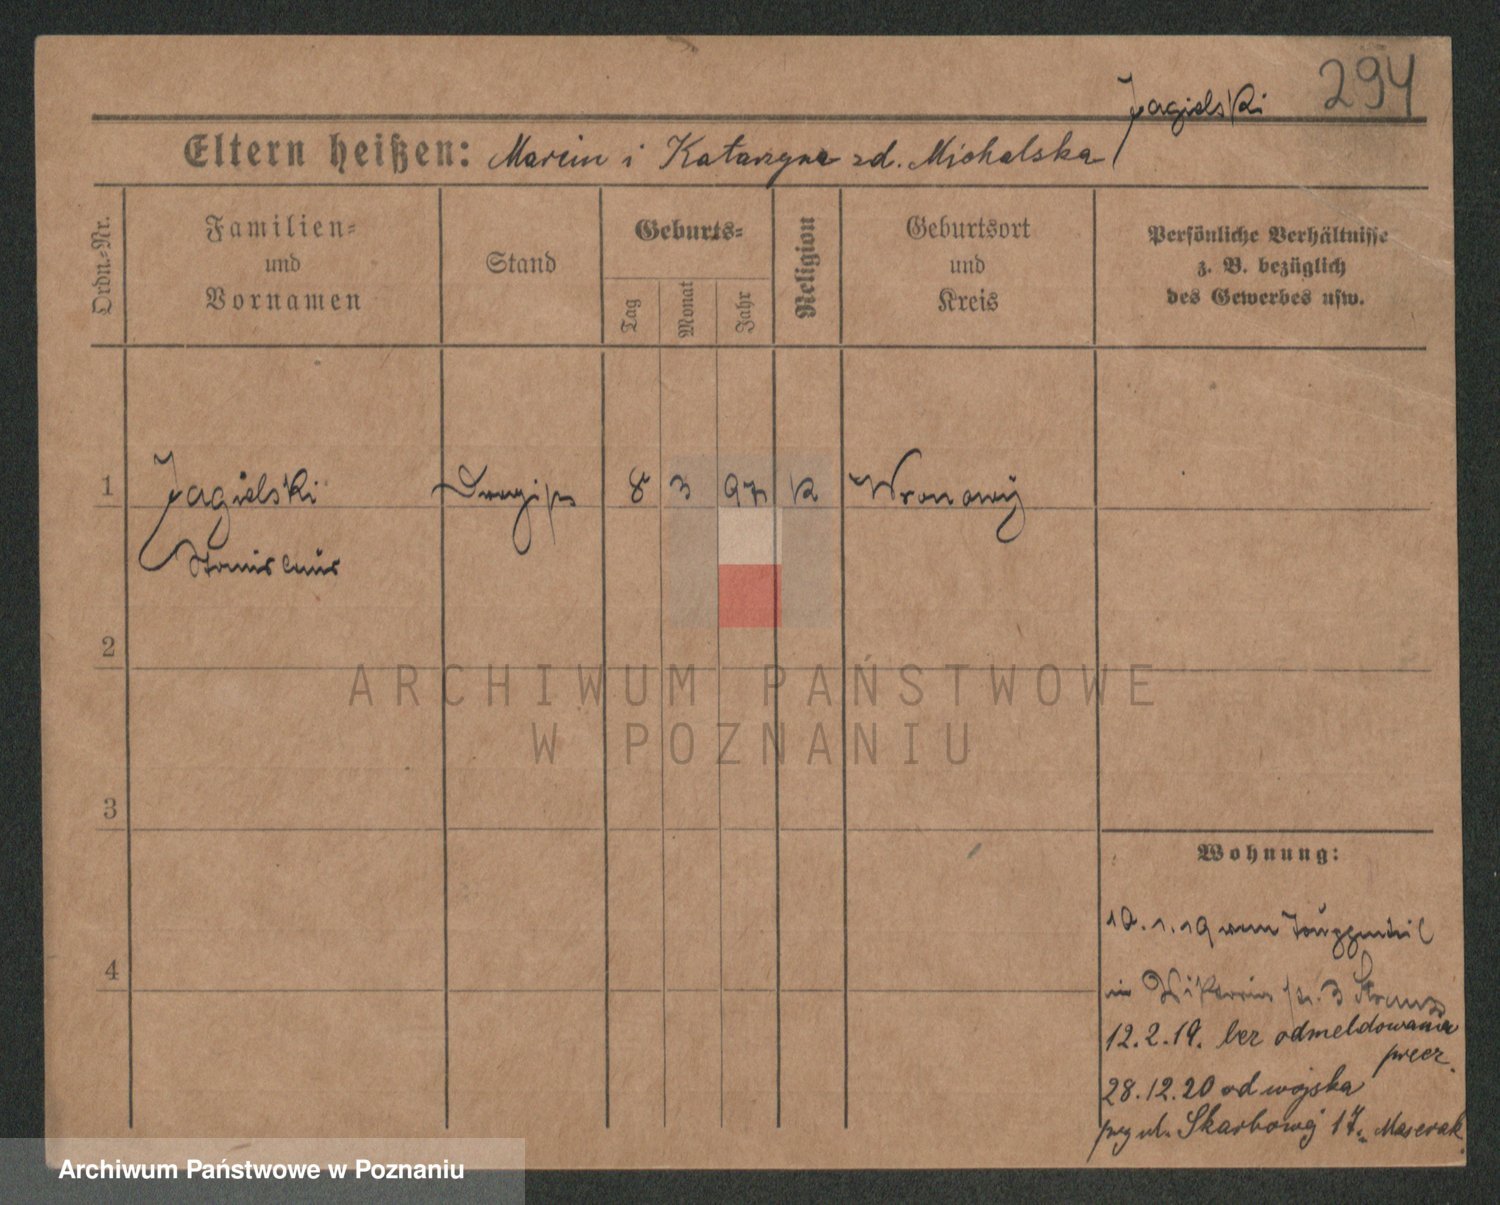 294
Jagielski
Eltern heißen: Marcin i Katarzyna zd. Michalska
Ordn.-Nr.
Familien-
und
Vornamen
Stand
Geburts-
Tag
Monat
Jahr
Religion
Geburtsort
und
Kreis
Persönliche Verhältnisse
z. B. bezüglich
des Gewerbes usw.
1 Jagielski 8 3 97 K Wronowy
Stanislaus
2
3
4
Wohnung:
10.1.19 vom
in 3
12.2.19. bez odmeldowania
precz.
28.12.20 od wojska
przy ul. Skarbowej 17
ARCHIWUM PAŃSTWOWE
W POZNANIU
Archiwum Państwowe w Poznaniu